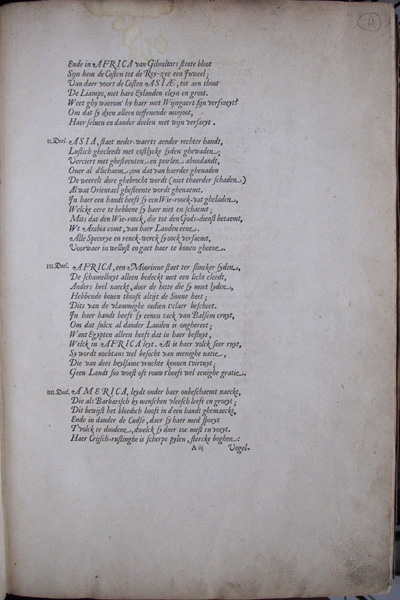 11
Ende in AFRICA van Gibraltars strate bloot
Sijn hem de Costen tot de Roy-zee een Iuweel;
Van daer voort de Costen ASIÆ, tot aen thoot
De Liampo, met hare Eylanden cleyn en groot.
Weet ghy waerom hy haer met Wijngaert sijn versraeyt?
Om dat sy dyen alleen oeffenende minjoot,
Haer selven en dander deelen met wijn versaeyt.
II. Deel. ASIA, staet neder-waerts aender rechter handt,
Lustich ghecleedt met costlycke syden ghewaden;
Verciert met ghesteenten en peerlen abundandt,
Over al d'lichaem, om dat van haerder ghenaden
De weerelt dore ghebrocht wordt (niet thaerder schaden)
Al wat Orientael ghesteente wordt ghenaemt.
In haer een handt heeft sy een Wie-roock-vat gheladen,
Welcke eere te hebbene sy haer niet en schaemt;
Mits dat den Wie-roock, die tot den Gods-dienst betaemt,
Wt Arabia comt, van haer Landen eene.
Alle Specerye en reuck-werck sy oock versaemt,
Voorwaer in wellust en gaet haer te boven gheene.
III. Deel. AFRICA, een Moorinne staet ter slincker syden,
De schamelheyt alleen bedeckt met een licht cleedt,
Anders heel naeckt, door de hitte die sy moet lyden,
Hebbende boven thooft altijt de Sonne heet;
Dits van de vlammighe radien t'claer bescheet.
In haer handt heeft sy eenen tack van Balsem cruyt,
Om dat sulcx al dander Landen is onghereet;
Want Egypten alleen heeft dat in haer besluyt,
Welck in AFRICA leyt. Al is haer volck seer ruyt,
Sy wordt nochtans wel besocht van menighe natie,
Die van dees heylsame vruchte kennen t'virtuyt;
Geen Landt soo woest oft rouw t'heeft wel eenighe gratie.
IIII. Deel. AMERICA, leydt onder haer onbeschaemt naeckt,
Die als Barbarisch by menschen vleesch leeft en groeyt;
Dit bewijst het bloedich hooft in een handt ghemaeckt,
Ende in dander de Cudse, daer sy haer med spoeyt
T'volck te doodene, dwelck sy daer toe mest en voeyt.
Haer Crijsch-rustinghe is scherpe pylen, stercke boghen:
A iij Vogel-